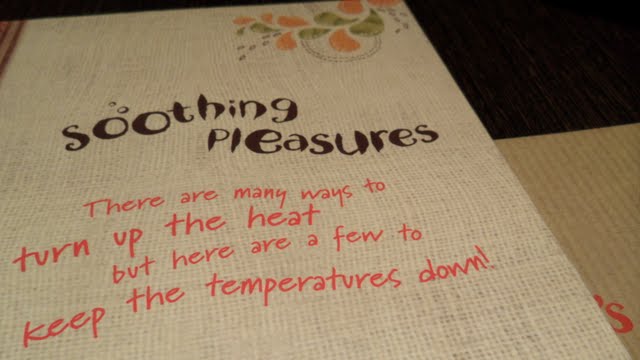 soothing
Pleasures
There are many ways to
turn up the heat
but here are a few to
keep the temperatures down!
's